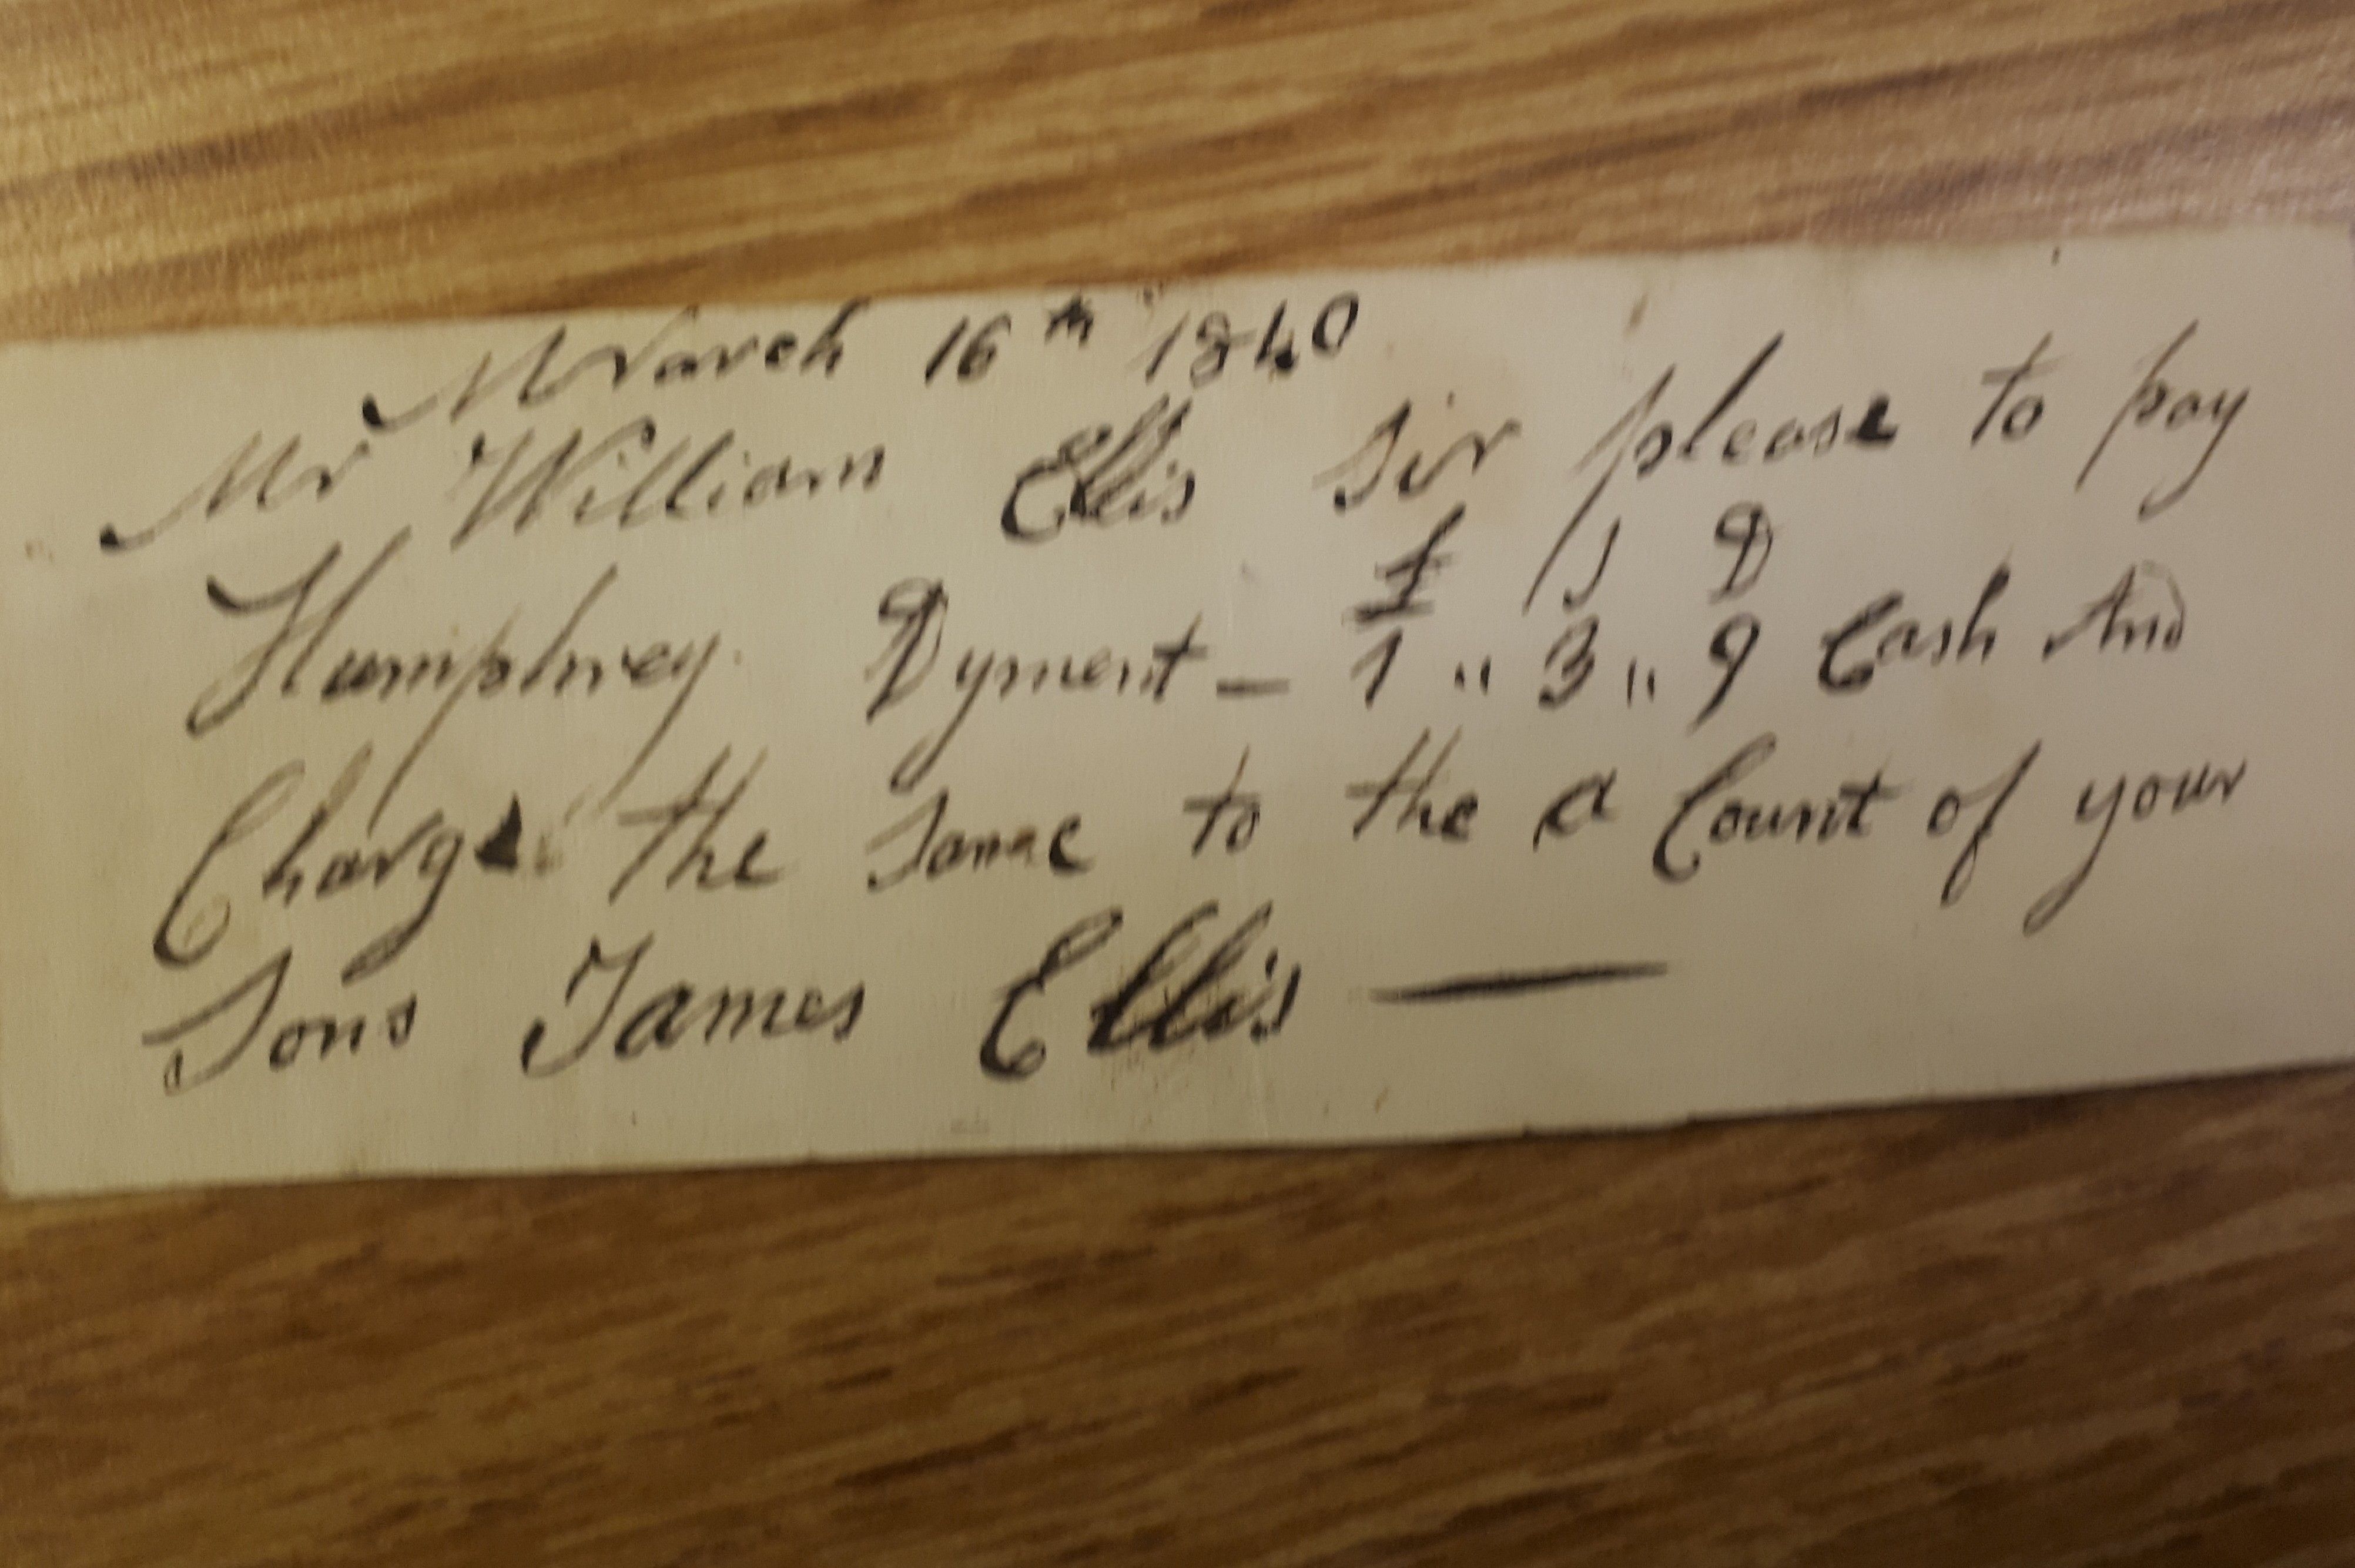 March 16th 1840
Mr William Ellis Sir please to pay
£ s D
Humphrey Dyment — 1 " 3 " 9 Cash And
Charge the Same to the a Count of your
Sons James Ellis —